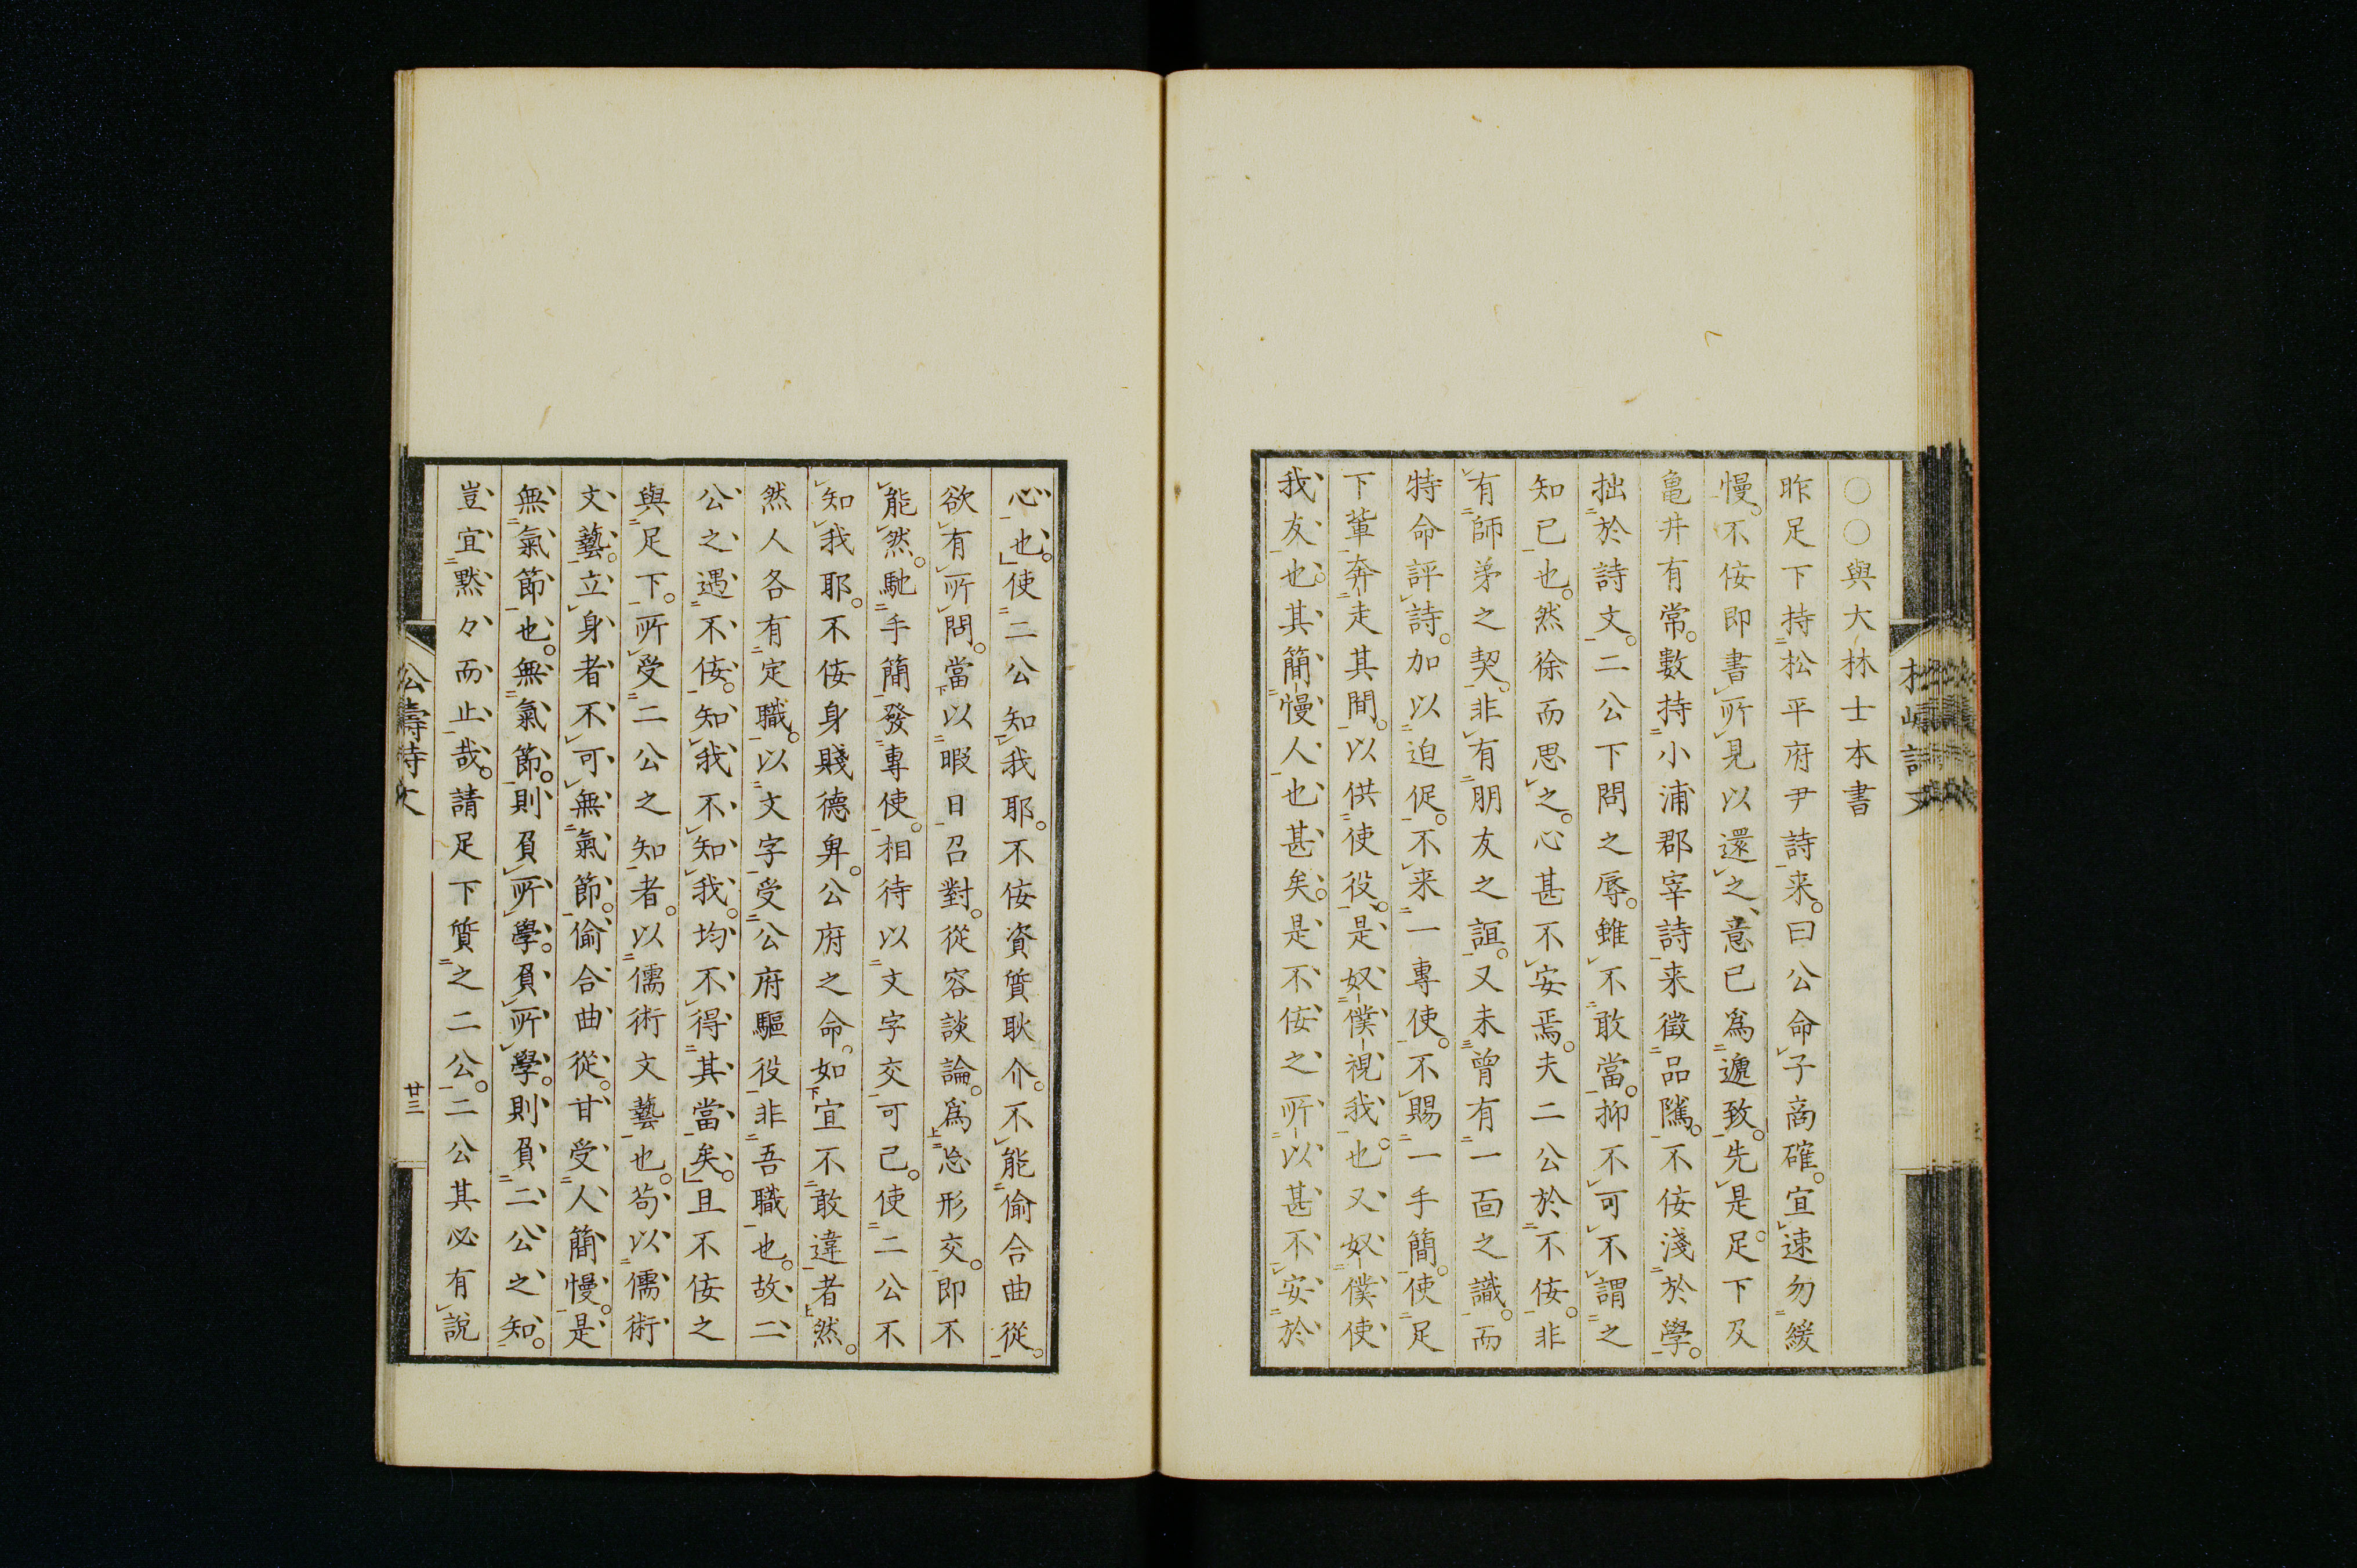 〇〇與大林士本書
昨足下持松平府尹詩来。曰公命子商確。宜速勿緩
慢。不侫即書所見以還之、意已爲遞致。先是足下及
亀井有常。數持小浦郡宰詩来徴品隲。不侫淺於學。
拙於詩文。二公下問之辱。雖不敢當。抑不可不謂之
知已也。然徐而思之。心甚不安焉。夫二公於不侫。非
有師弟之契。非有朋友之誼。又未曾有一面之識。而
特命評詩。加以迫促。不来一專使。不賜一手簡。使足
下輩奔走其間。以供使役。是奴僕視我也。又奴僕使
我友也。其簡慢人也甚矣。是不侫之所以甚不安於
心也。」使二公知我耶。不侫資質耿介。不能偷合曲従。
欲有所問。當以暇日召對。從容談論。爲忘形交。即不
能然。馳手簡發專使。相待以文字交可已。使二公不
知我耶。不侫身賤德卑。公府之命。如宜不敢違者然。
然人各有定職。以文字受公府驅役非吾職也。故二
公之遇不侫。知我不知我。均不得其當矣。」且不侫之
與足下。所受二公之知者。以儒術文藝也。苟以儒術
文藝。立身者不可無氣節。偷合曲從。甘受人簡慢。是
無氣節也。無氣節。則負所學。負所學。則負二公之知。
豈宜黙々而止哉。請足下質之二公。二公其必有說
廿三